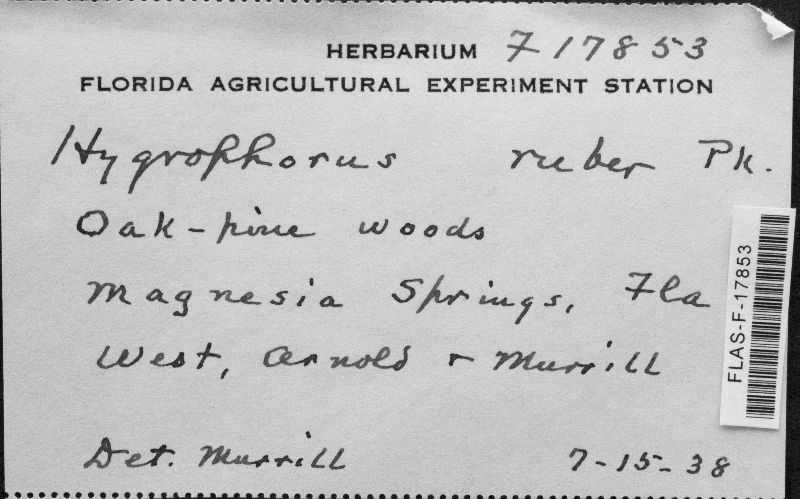 HERBARIUM F 17853
FLORIDA AGRICULTURAL EXPERIMENT STATION
Hygrophorus ruber Pk.
Oak-pine woods
Magnesia Springs, Fla
West, Arnold + Murrill
Det. Murrill 7-15-38
FLAS-F-17853